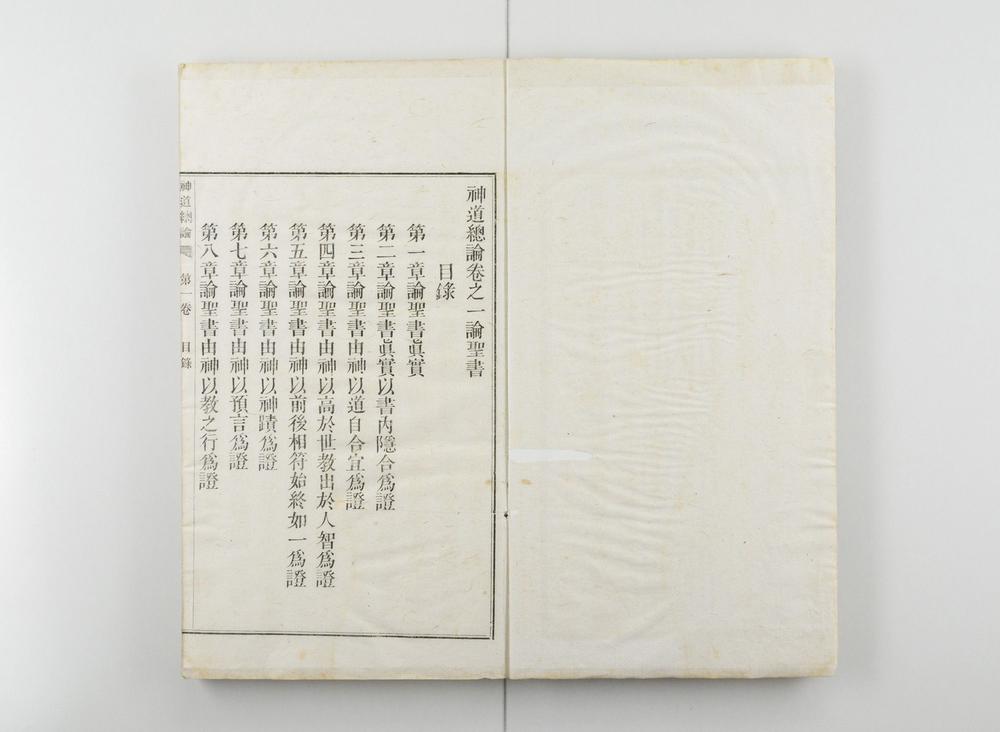 神道總論卷之一論聖書
目錄
第一章論聖書眞實
第二章論聖書眞實以書內隱合爲證
第三章論聖書由神以道自合宜爲證
第四章論聖書由神以高於世教出於人智爲證
第五章論聖書由神以前後相符始終如一爲證
第六章論聖書由神以神蹟爲證
第七章論聖書由神以預言爲證
第八章論聖書由神以教之行爲證
神道總論 第一卷 目錄